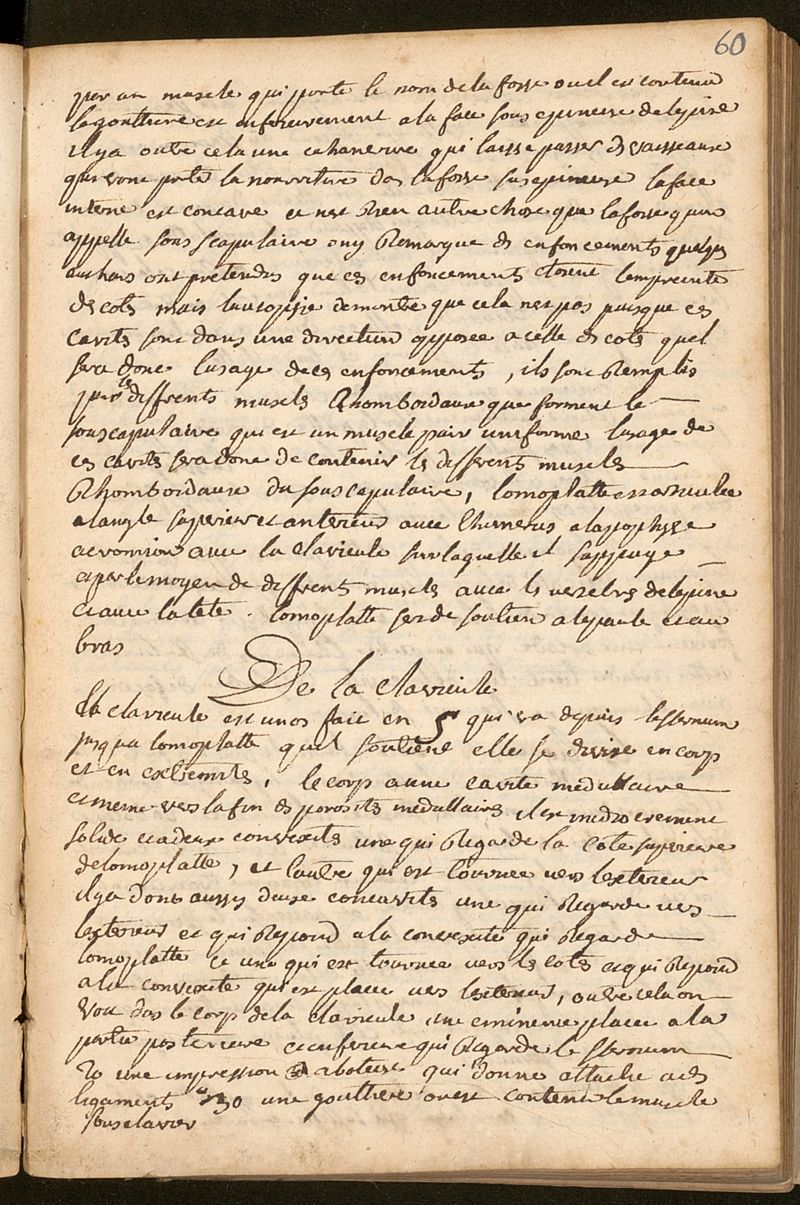 60
par un muscle qui porte le nom de la fosse ou il est contenu
la gouttiere est inferieurement a la face sous epineuse de lepine
il ya outre cela une echancrure qui laisse passer ds vaisseaux
qui vont porter la nourriture das la fosse susepineuse la face
interne est concave et nest rien autre chose que la fosse quon
appelle sous scapulaire on y remarque ds enfoncements quelqs
autheurs ont pretendus que ces enfoncements etoient lempreinte
ds cots mais lautopsie demontre que cela nest pas puisque ces
cavits sont dans une direction opposee a celle ds cots quel
sera donc lusage de ces enfoncements, ils sont remplis
par ls diffrents muscls Rhomboidaux que forment le
souscapulaire qui est un muscle pair uniforme lusage de
ces cavits sera donc de contenir ls diffrents muscls
Rhomboidaux du sous scapulaire, lomoplatte est articulee
a langle superieur et anterieur avec lhumerus a lapophyse
acromion avec la clavicule sur laquelle il sappuye
et par le moyen de diffrents muscls avec ls vertebrs de lepine
et avec la tete. lomoplatte sert de soutien a lepaule et au
bras
De la clavicule
La clavicule est un os fait en S qui va depuis le sternum
jusqua lomoplatte quel soutiene elle se divise en corp
et en extremits, le corp a une cavite medullaire
et meme vers la fin ds porosits medullaires il est mediocrement
solide et a deux convexits une qui regarde la cote superieure
de lomoplatte, et lautre qui est tournee vers lexterieur
il ya donc aussy deux concavits une qui regarde vers
lexterieur et qui repond a la convexite qui regarde
lomoplatte et une qui est tournee vers ls cots et qui repond
a la convexite qui est placee vers lexterieur, outre cela on
voit das le corp de la clavicule une eminence placee a la
partie posterieure et inferieure qui regarde le sternum
2o une impression raboteuse qui donne attache a ds
ligaments 3o une gouttiere ou est contenu le muscle
sousclavier